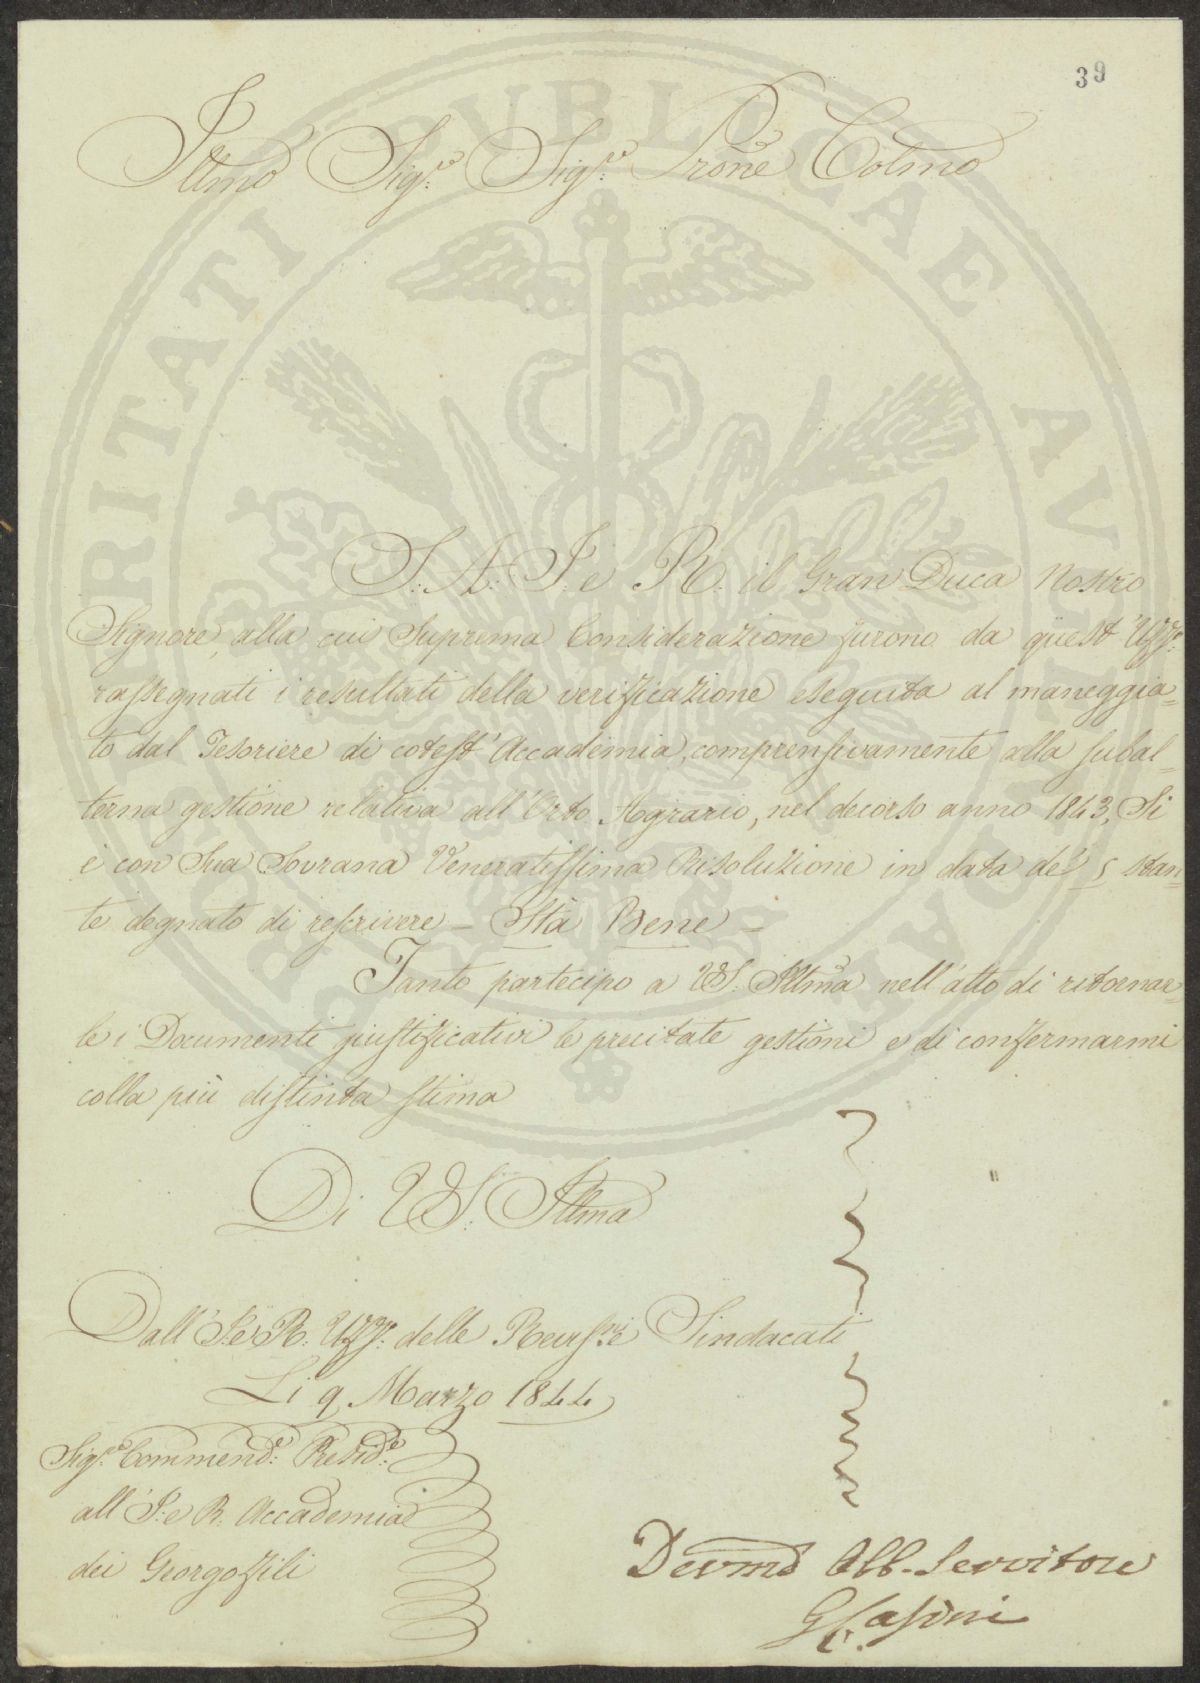 39
Illmo Sig.re Sig.re Prone Colmo
S: A: I: e R: il Gran Duca Nostro
Signore, alla cui Suprema Considerazione furono da quest' Uffo:
rassegnati i resultati della verificazione eseguita al maneggia=
to dal Tesoriere di cotest' Accademia, comprensivamente alla subal=
terna gestione relativa all' Orto Agrario, nel decorso anno 1843, Si
è con Sua Sovrana Veneratissima Risoluzione in data de' 5 stan=
te degnato di rescrivere = Stà Bene =
Tanto partecipo a VS. Illma nell' atto di ritornar=
le i Documenti giustificativi le precitate gestioni e di confermarmi
colla più distinta stima
Di VS: Illma
Dall' I: e R: Uffo: delle Revisni e Sindacati
Li 9 Marzo 1844
Sig.re Commendre: Preside:
all' I: e R: Accademia
dei Georgofili
Devmo Obb. Servitore
G. Casini
PROSPERITATI PUBLICAE AUGENDAE